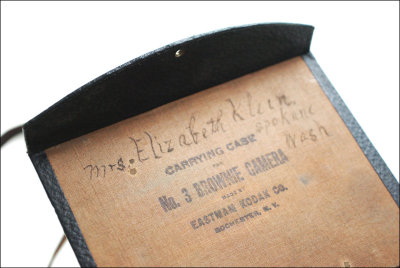 Mrs. Elizabeth Klein.
Spokane
Wash
CARRYING CASE
FOR
No. 3 BROWNIE CAMERA
MADE BY
EASTMAN KODAK CO.
ROCHESTER, N.Y.